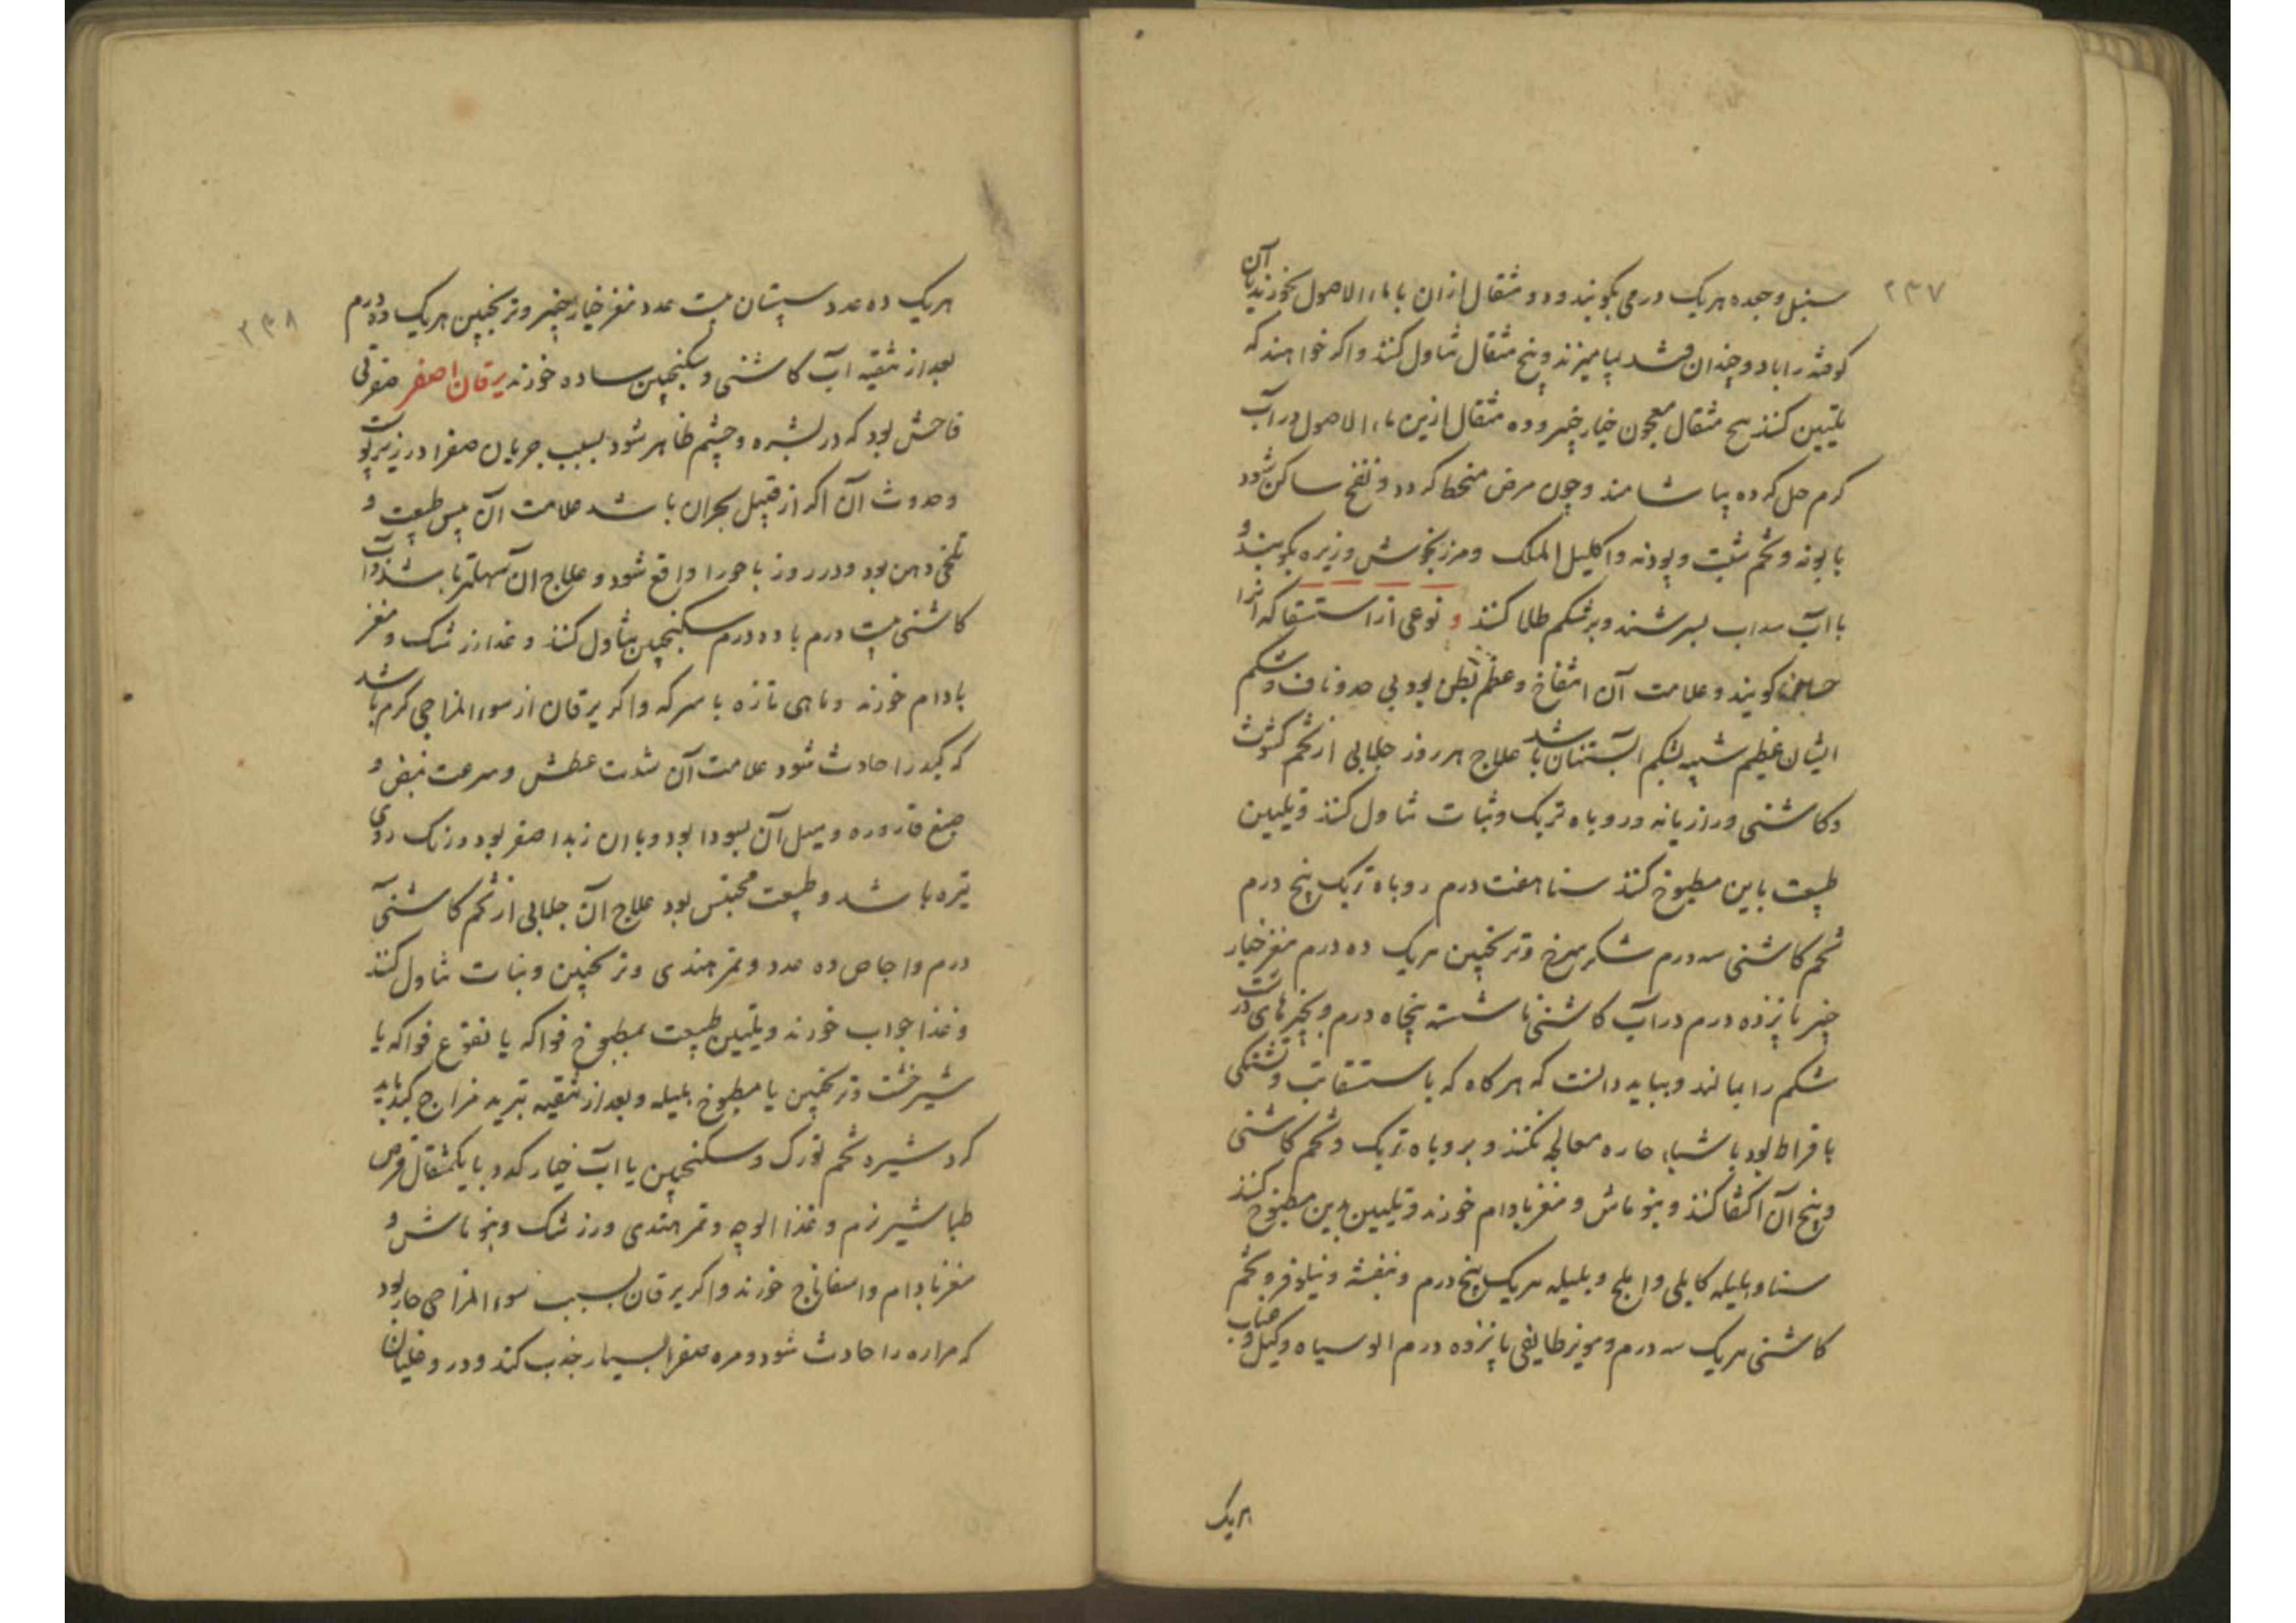 ۲۳۷
سنبل و جعده هریک درمی بکوبند و دو مثقال ازان با ماء الاصول بخورند یا آن
کوفته را با دو چندان قند بیامیزند و پنج مثقال تناول کنند و اکر خواهند که
تلیین کنند پنج مثقال معجون خیار چنبر و ده مثقال ازین ماء الاصول در آب
کرم حل کرده بیاشامند و چون مرض منحط کردد و نفخ ساکن شود
بابونه و تخم شبت و پودنه و اکلیل الملک و مرزنجوش و زیره بکوبند و
با آب سداب بسرشند و بر شکم طلا کنند و نوعی از استسقا که انرا
کویند و علامت آن انتفاخ و عظم بطن بود بی حد و ناف و شکم
ایشان عظیم شبیه بشکم آبستنان باشد علاج هر روز جلابی از تخم کشوث
و کاشنی و رازیانه و روباه تربک و نبات تناول کنند و تلیین
طبیعت باین مطبوخ کنند سنا هفت درم روباه تربک پنج درم
تخم کاشنی سه درم شکر سرخ و ترنجبین هریک ده درم مغز خیار
چنبر پانزده درم در آب کاشنی ناشسته پنجاه درم و
شکم را بمالند و بباید دانست که هرکاه که با استسقا تب و تشنکی
بافراط بود باشیاء حاره معالجه نکنند و بروباه تربک و تخم کاشنی
و بیخ آن اکتفا کنند و بنو ماش و مغز بادام خورند و تلیین بدین مطبوخ کنند
سنا و هلیله کابلی و املج و بلیله هریک پنج درم و بنفشه و نیلوفر و تخم
کاشنی هریک سه درم و مویز طایفی پانزده درم الو سیاه و کیل و عناب
هریک
۲۳۸
هریک ده عدد سپستان بیست عدد مغز خیار چنبر و ترنجبین هریک ده درم
بعد از تنقیه آب کاشنی و سکنجبین ساده خورند یرقان اصفر صفرتی
فاحش بود که در بشره و چشم ظاهر شود بسبب جریان صفرا در زیر پوست
و حدوث آن اکر از قبیل بحران باشد علامت آن یبس طبیعت و
تلخی دهن بود و در روز باحورا واقع شود و علاج ان سهلتر باشد و آب
کاشنی بیست درم با ده درم سکنجبین تناول کنند و غذا زرشک و مغز
بادام خورند و ماهی تازه با سرکه و اکر یرقان از سوء المزاجی کرم باشد
که کبد را حادث شود علامت آن شدت عطش و سرعت نبض و
صبغ قاروره و میل آن بسودا بود و با ان زبد اصفر بود و رنک روی
تیره باشد و طبیعت محتبس بود علاج آن جلابی از تخم کاشنی
درم و اجاص ده عدد و تمر هندی و ترنجبین و نبات تناول کنند
و غذا جواب خورند و تلیین طبیعت بمطبوخ فواکه یا نقوع فواکه یا
شیر خشت و ترنجبین یا مطبوخ هلیله و بعد از تنقیه تبرید مزاج کبد باید
کرد شیره تخم تورک و سکنجبین یا آب خیار کدو با یکمثقال قرص
طباشیر نرم و غذا الوچه و تمر هندی و زرشک و بنو ماش و
مغز بادام و اسفاناج خورند و اکر یرقان بسبب سوء المزاجی حار بود
که مراره را حادث شود و مره صفرا بسیار جذب کند و در و غلیان